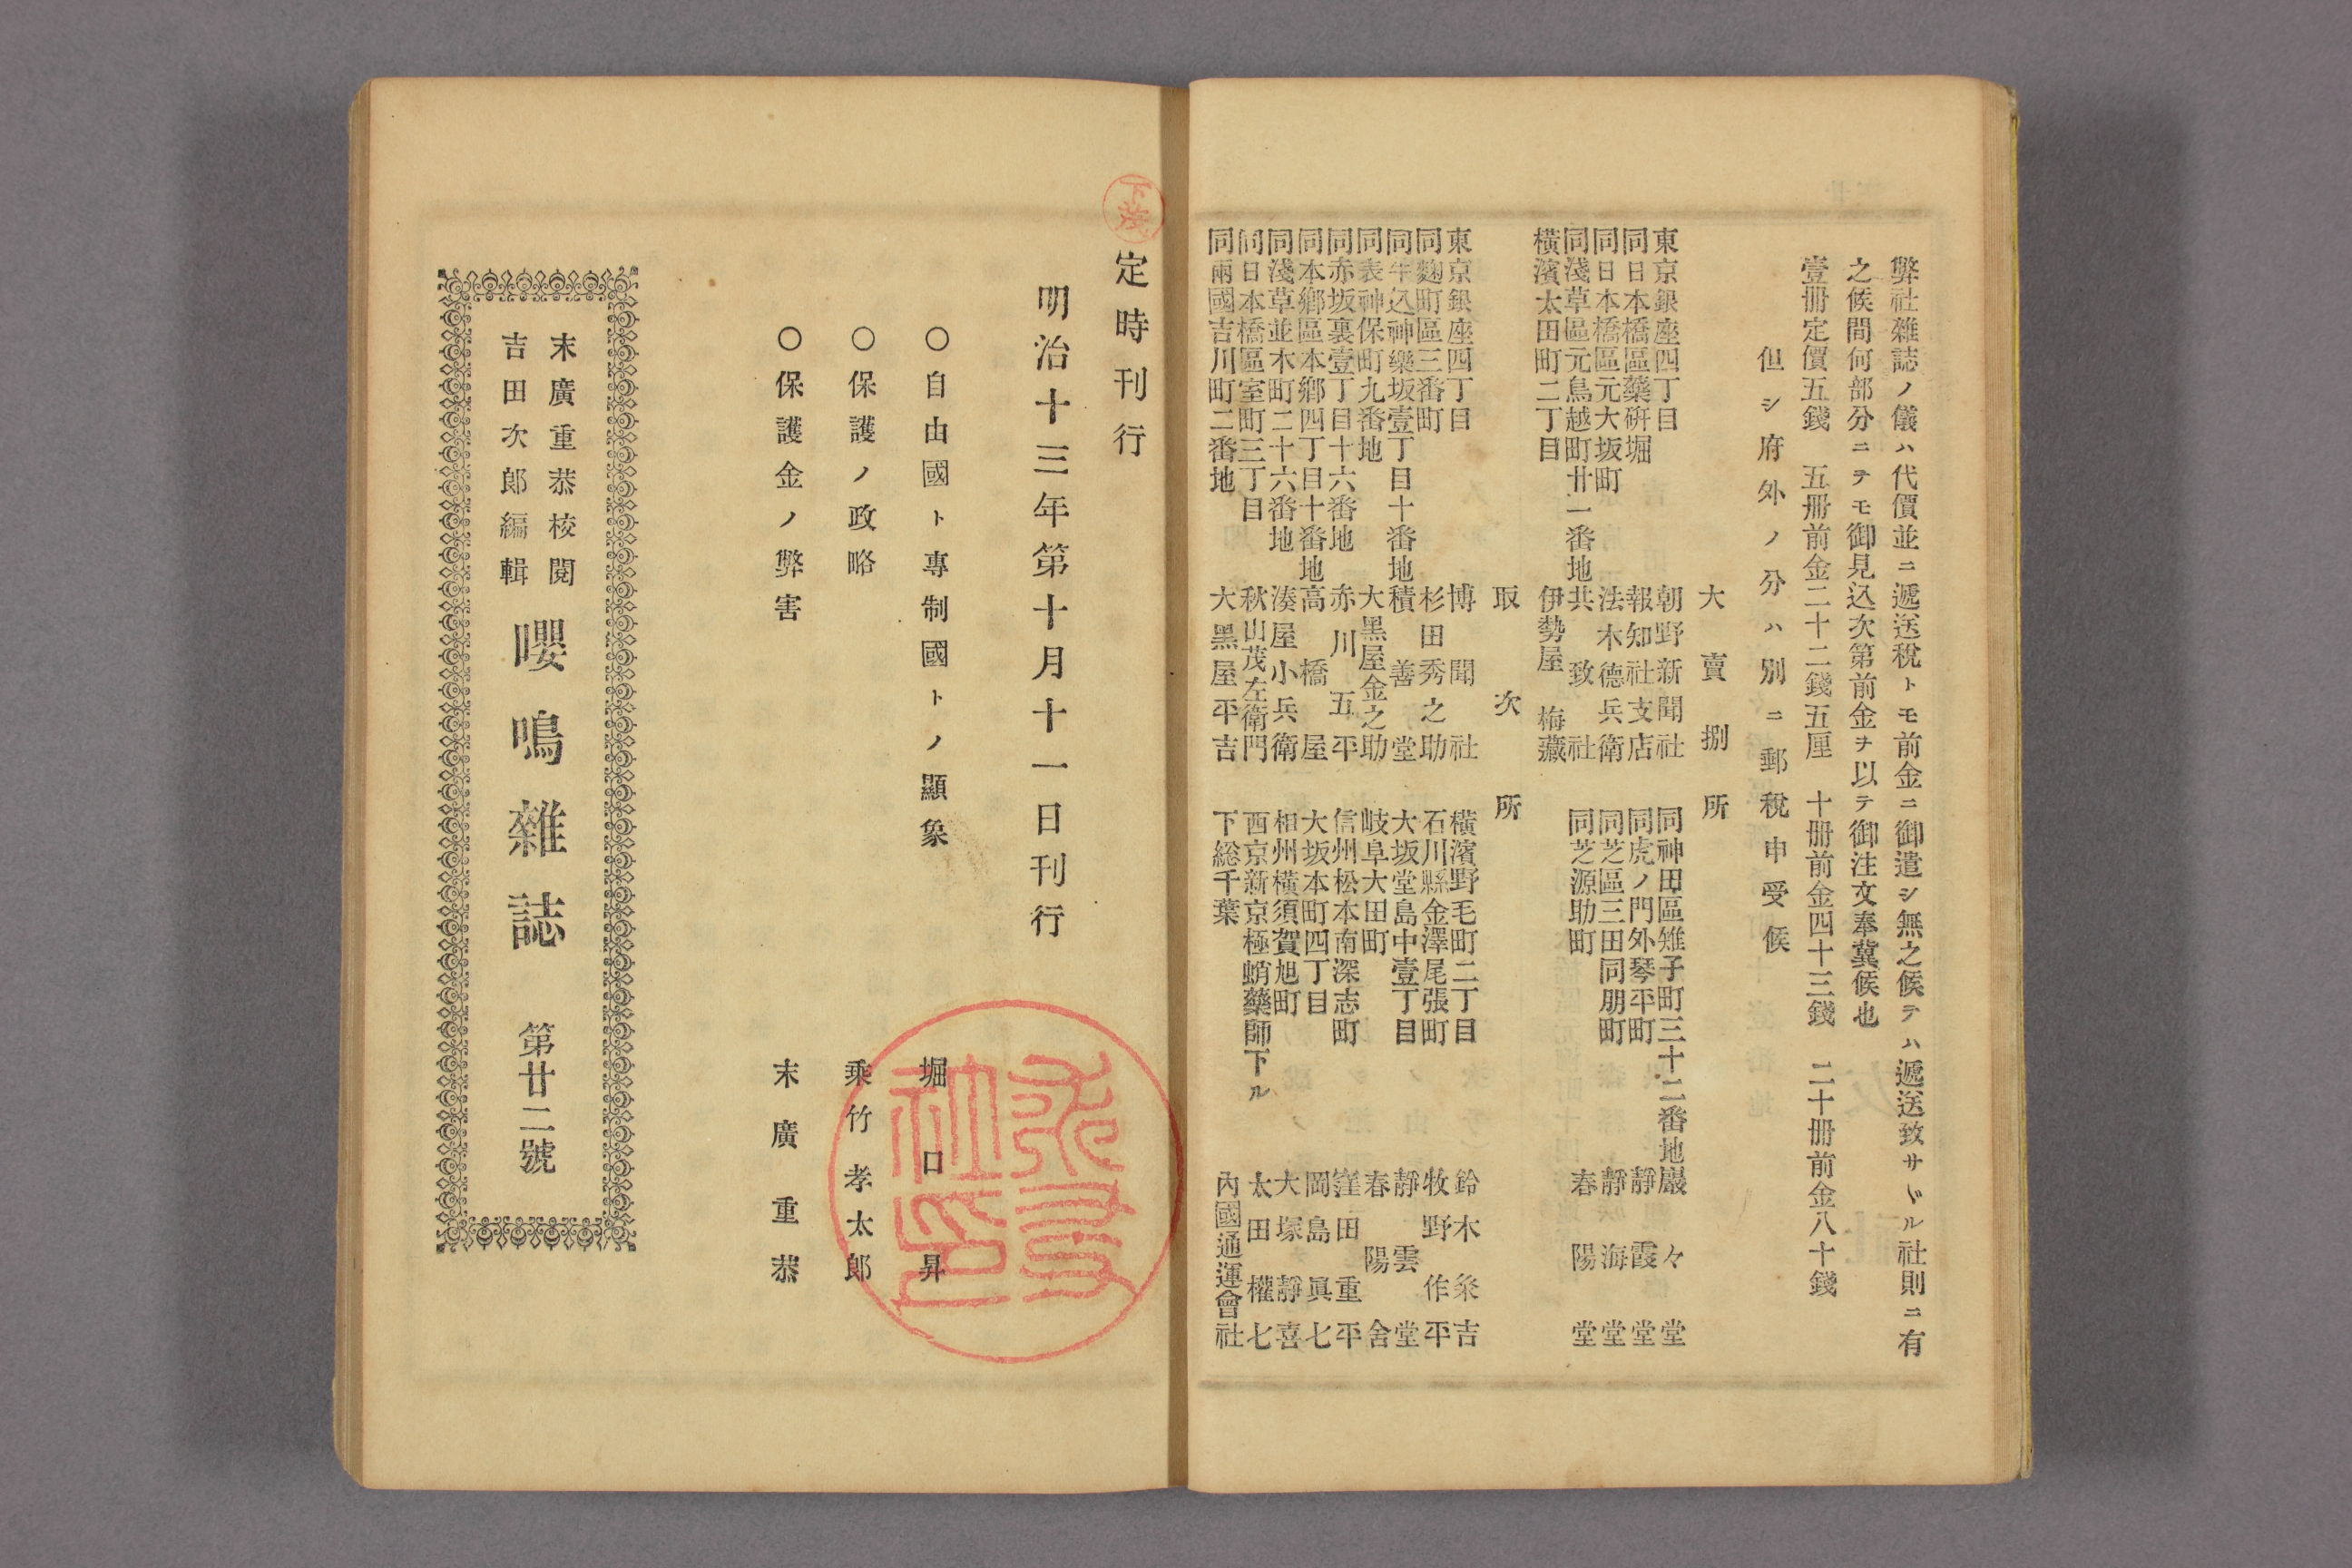 弊社雜誌ノ儀ハ代價並ニ遞送稅トモ前金ニ御遣シ無之候テハ遞送致サヾル社則ニ有
之候間何部分ニテモ御見込次第前金ヲ以テ御注文奉冀候也
壹冊定價五錢　五册前金二十二錢五厘　十册前金四十三錢　二十册前金八十錢
但シ府外ノ分ハ別ニ郵稅申受候
大賣捌所
東京銀座四丁目　朝野新聞社　同神田區雉子町三十二番地　巖々堂
同日本橋區藥硏堀　報知社支店　同虎ノ門外琴平町　靜霞堂
同日本橋區元大坂町　法木德兵衛　同芝區三田同朋町　靜海堂
同淺草區元鳥越町廿一番地　共致社　同芝源助町　春陽堂
橫濱太田町二丁目　伊勢屋梅藏
取次所
東京銀座四丁目　博聞社　橫濱野毛町二丁目　鈴木粂吉
同麴町區三番町　杉田秀之助　石川縣金澤尾張町　牧野作平
同牛込神樂坂壹丁目十番地　積善堂　大坂堂島中壹丁目　靜雲堂
同表神保町九番地　大黑屋金之助　岐阜大田町　春陽舍
同赤坂裏壹丁目十六番地　赤川五平　信州松本南深志町　窪田重平
同本鄕區本鄕四丁目十番地　高橋屋　大坂本町四丁目　岡島眞七
同淺草並木町二十六番地　湊屋小兵衛　相州橫須賀旭町　大塚靜喜
同日本橋區室町三丁目　秋山茂左衛門　西京新京極蛸藥師下ル　太田權七
同兩國吉川町二番地　大黑屋平吉　下総千葉　內國通運會社
定時刊行
明治十三年第十月十一日刊行
○自由國ト專制國トノ顯象　堀口昇
○保護ノ政略　乘竹孝太郎
○保護金ノ弊害　末廣重恭
末廣重恭校閱
吉田次郎編輯
嚶鳴雜誌　第廿二號